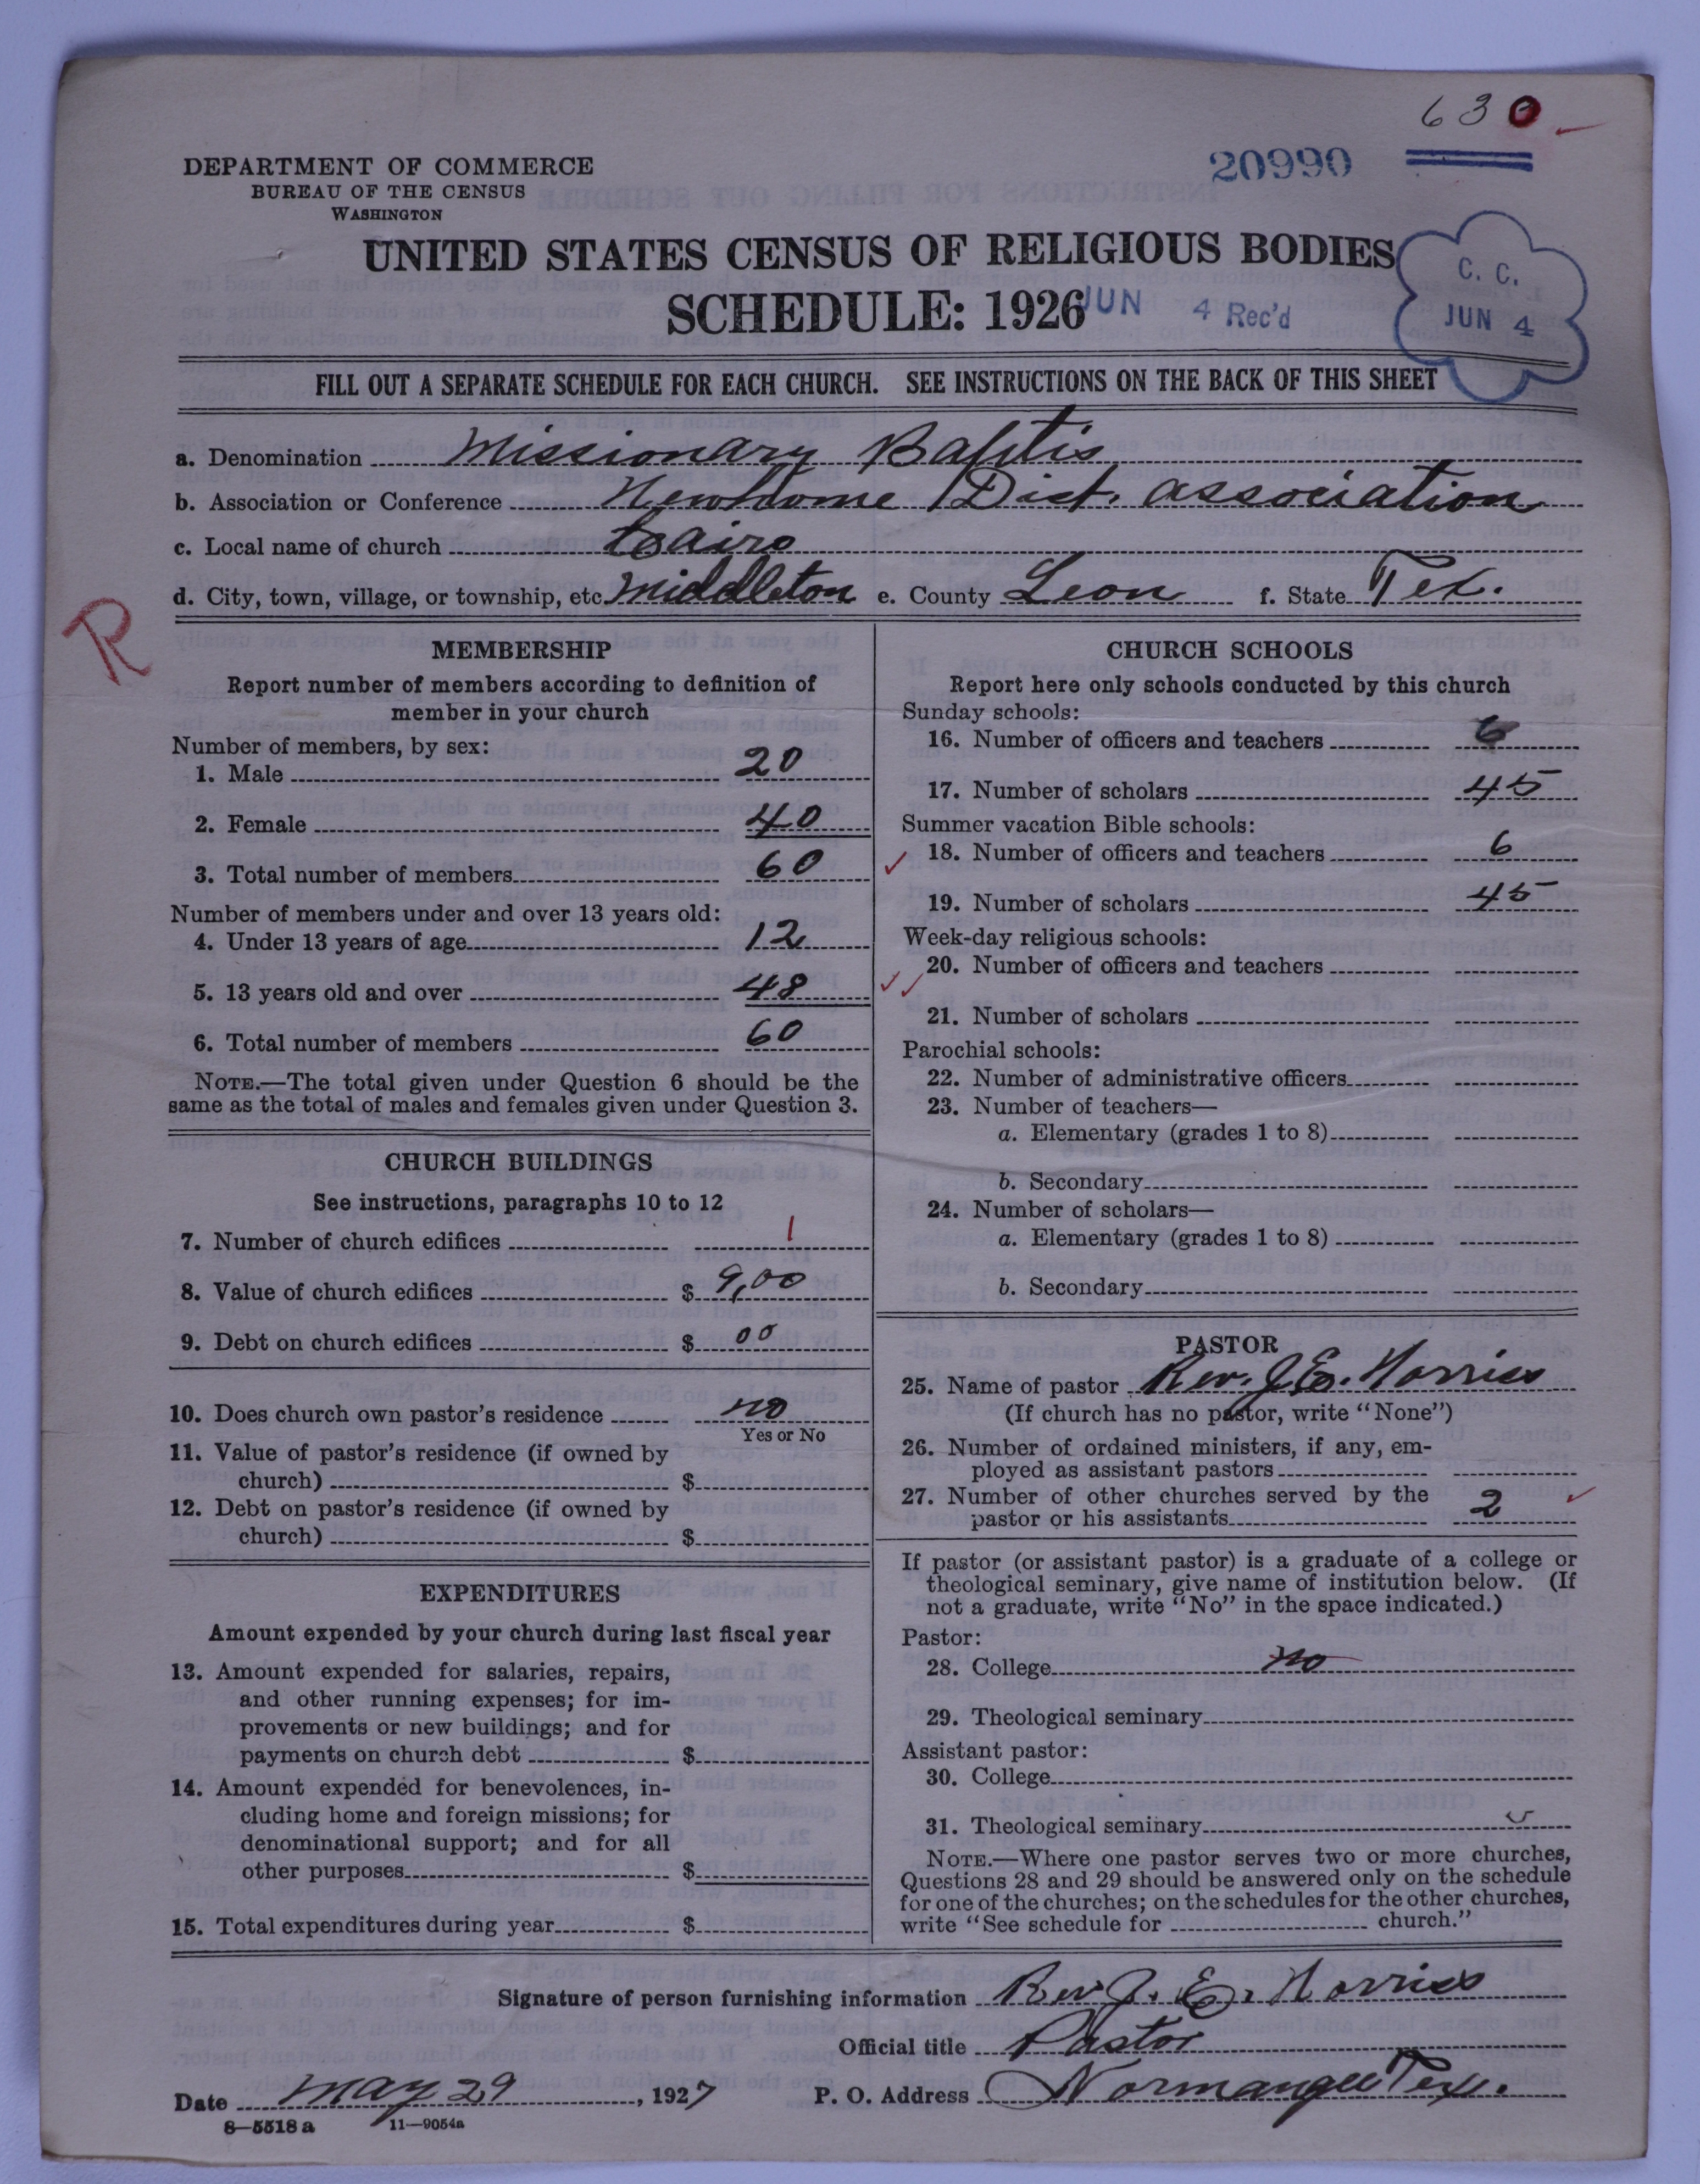 630
20990
DEPARTMENT OF COMMERCE
BUREAU OF THE CENSUS
WASHINGTON
UNITED STATES CENSUS OF RELIGIOUS BODIES
SCHEDULE: 1926
JUN 4 Rec'd
C. C.
JUN 4
FILL OUT A SEPARATE SCHEDULE FOR EACH CHURCH. SEE INSTRUCTIONS ON THE BACK OF THIS SHEET
a. Denomination Missionary Baptis
b. Association or Conference Newhome Dist. association
c. Local name of church Cairo
d. City, town, village, or township, etc. Middleton e. County Leon f. State Tex.
R
MEMBERSHIP
Report number of members according to definition of
member in your church
Number of members, by sex:
1. Male 20
2. Female 40
3. Total number of members 60
Number of members under and over 13 years old:
4. Under 13 years of age 12
5. 13 years old and over 48
6. Total number of members 60
NOTE.—The total given under Question 6 should be the
same as the total of males and females given under Question 3.
CHURCH BUILDINGS
See instructions, paragraphs 10 to 12
7. Number of church edifices 1
8. Value of church edifices $ 9,00
9. Debt on church edifices $ 00
10. Does church own pastor's residence no
Yes or No
11. Value of pastor's residence (if owned by
church) $
12. Debt on pastor's residence (if owned by
church) $
EXPENDITURES
Amount expended by your church during last fiscal year
13. Amount expended for salaries, repairs,
and other running expenses; for im-
provements or new buildings; and for
payments on church debt $
14. Amount expended for benevolences, in-
cluding home and foreign missions; for
denominational support; and for all
other purposes $
15. Total expenditures during year $
CHURCH SCHOOLS
Report here only schools conducted by this church
Sunday schools:
16. Number of officers and teachers 6
17. Number of scholars 45
Summer vacation Bible schools:
18. Number of officers and teachers 6
19. Number of scholars 45
Week-day religious schools:
20. Number of officers and teachers
21. Number of scholars
Parochial schools:
22. Number of administrative officers
23. Number of teachers—
a. Elementary (grades 1 to 8)
b. Secondary
24. Number of scholars—
a. Elementary (grades 1 to 8)
b. Secondary
PASTOR
25. Name of pastor Rev. J. E. Norriss
(If church has no pastor, write "None")
26. Number of ordained ministers, if any, em-
ployed as assistant pastors
27. Number of other churches served by the
pastor or his assistants 2
If pastor (or assistant pastor) is a graduate of a college or
theological seminary, give name of institution below. (If
not a graduate, write "No" in the space indicated.)
Pastor:
28. College no
29. Theological seminary
Assistant pastor:
30. College
31. Theological seminary
NOTE.—Where one pastor serves two or more churches,
Questions 28 and 29 should be answered only on the schedule
for one of the churches; on the schedules for the other churches,
write "See schedule for church."
Signature of person furnishing information Rev J. E. Norriss
Official title Pastor
Date May 29, 1927 P. O. Address Normangee Tex.
8—5518 a 11—9054a